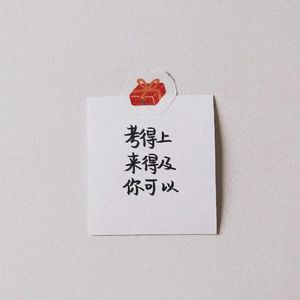 考得上
来得及
你可以